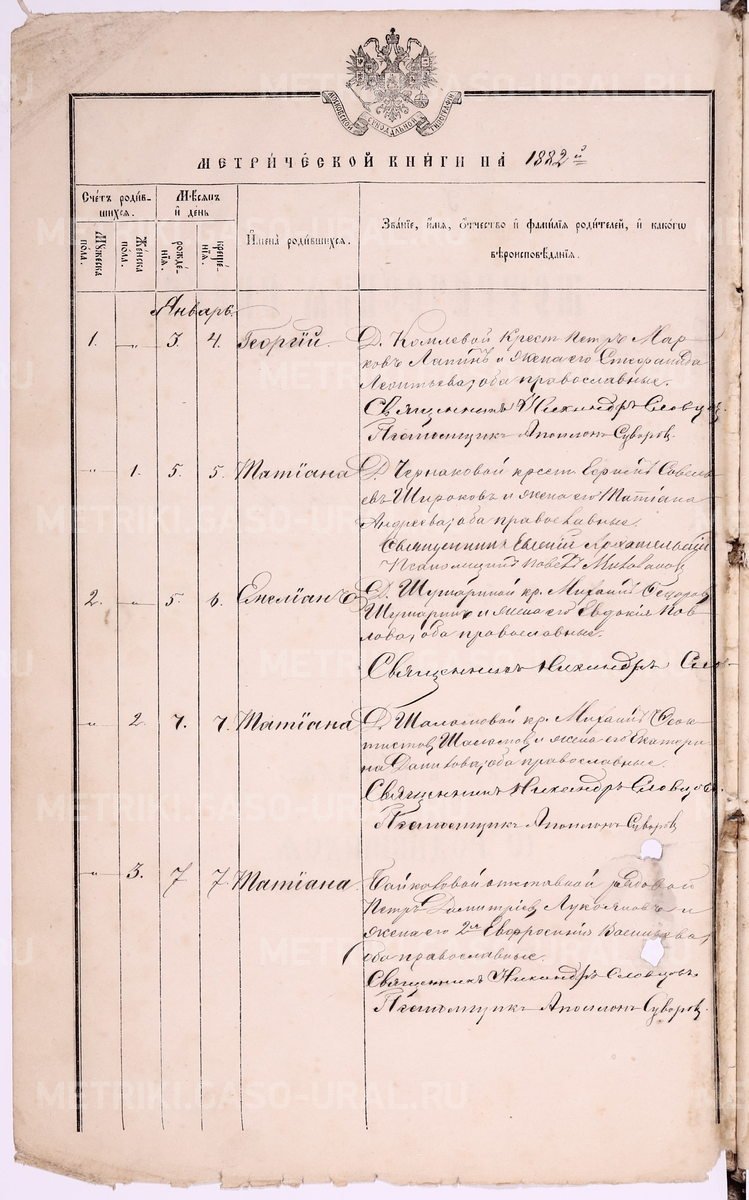 МОСКОВСКОЙ СѴНОДАЛЬНОЙ ТИПОГРАФІИ
МЕТРИ́ЧЕСКОЙ КНИ́ГИ НА́ 1882 й
Сче́тъ роди́в-
шихся.
Мѣ́сяцъ
и҆ день
Мꙋ́жеска
по́ла.
Же́нска
по́ла.
рожде́-
нїя.
креще́-
нїя.
И҆мена̀ роди́вшихся.
Зва́нїе, и҆́мѧ, ѻ҆́тчество и҆ фами́лїѧ роди́телей, и҆ како́гѡ
вѣроисповѣ́данїѧ.
Январь
1. „ 3. 4. Георгій. Д. Комлевой Крест. Петръ Мар-
ковъ Лапинъ и жена его Стефанида
Леонтьева; оба православные.
Священникъ Никандръ Словцов.
Псаломщик Аполлон Суворов.
„ 1. 5. 5. Татіана. Д. Чернаковой крест. Сергій Савель-
евъ Широковъ и жена его Татіана
Андреева; оба православные.
Священникъ Евгеній Архангельскій
Псаломщикъ Миловановъ
2. „ 5. 6. Емеліанъ Д. Шутариной кр. Михаилъ Федоров
Шутаринъ и жена его Евдокія Пав-
лова; оба православные.
Священникъ Никандръ Слов-
„ 2. 7. 7. Татіана Д. Шаламовой кр. Михаилъ Феок-
тистов Шаламов и жена его Екатери-
на Данилова; оба православные.
Священникъ Никандръ Словцовъ.
Псаломщикъ Аполлон Суворов
„ 3. 7 7 Татіана. Байкаловой отставной рядовой
Петръ Димитріев Лукояновъ и
жена его 2я Евфросинія Васильева,
оба православные.
Священникъ Никандръ Словцовъ.
Псаломщикъ Аполлон Суворов.
METRIKI.GASO-URAL.RU